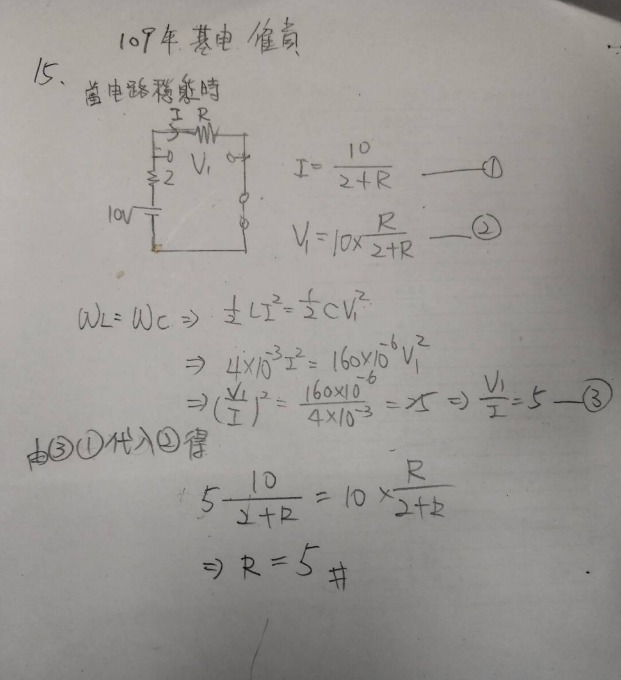 109年基电僱員
15、
當电路穩態時
I R
V₁
2
10V
I = 10/(2+R) ——①
V₁ = 10×R/(2+R) ——②
WL = WC ⇒ 1/2 LI² = 1/2 CV₁²
⇒ 4×10⁻³I² = 160×10⁻⁶V₁²
⇒ (V₁/I)² = 160×10⁻⁶/4×10⁻³ = 25 ⇒ V₁/I = 5 ——③
由③①代入②得
5 10/(2+R) = 10 × R/(2+R)
⇒ R = 5 #